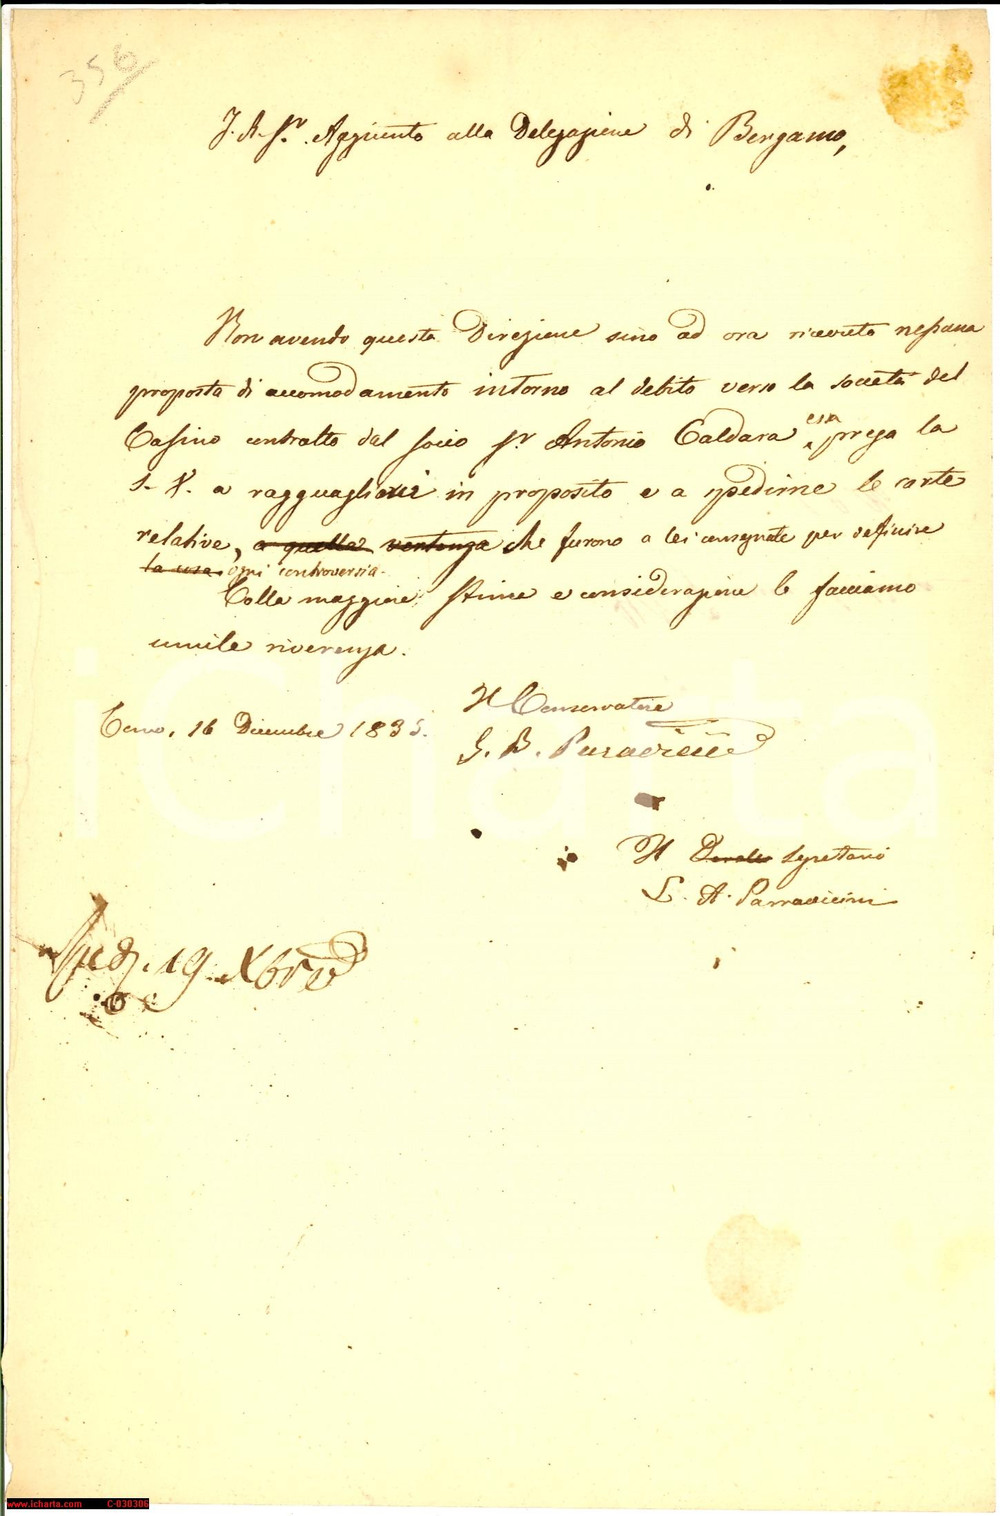 356
I. R. Sr. Aggiunto alla Delegazione di Bergamo,
Non avendo questa Direzione sino ad ora ricevuto nessuna
proposta di accomodamento intorno al debito verso la società del
Casino contratto dal socio Sr. Antonio Caldara essa prega la
S. V. a ragguagliarci in proposito e a spedirne le carte
relative, a quella vertenza che furono a lei consegnate per definire
la cosa. ogni controversia.
Colla maggiore stima e considerazione le facciamo
umile riverenza.
Como, 16 Dicembre 1835.
Il Conservatore
G. B. Paravicini
Il Segretario
L. A. Parravicini
Sped. 19 Xbre
iCharta
www.icharta.com C-030306